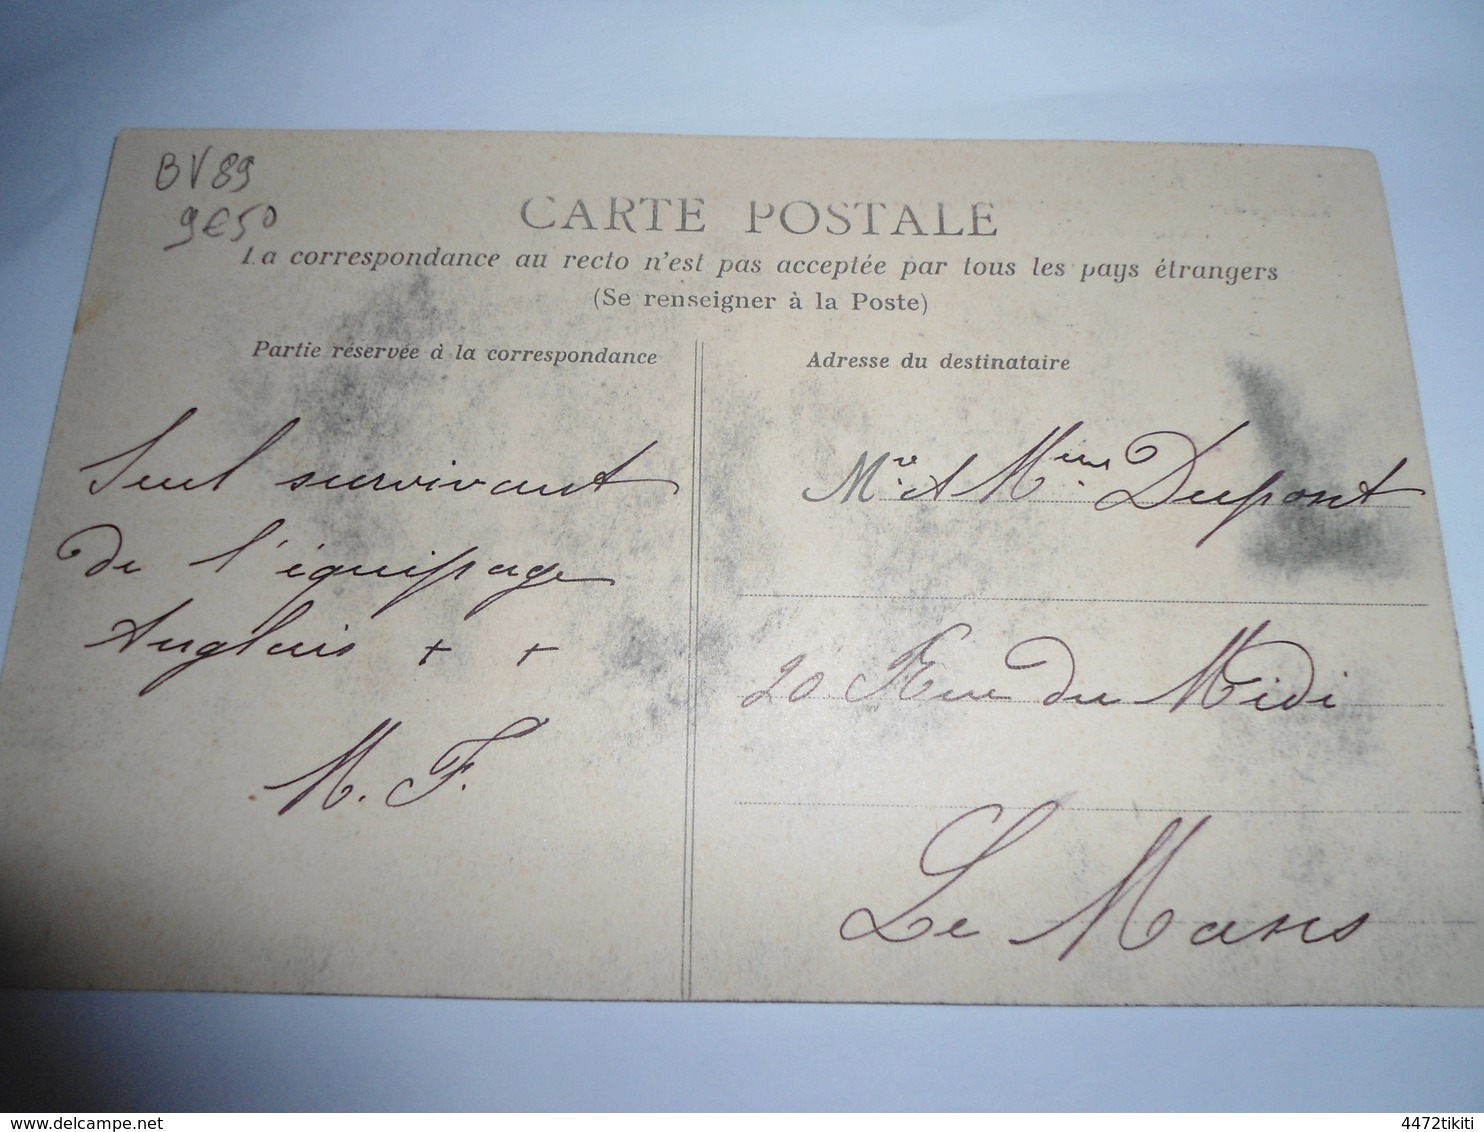 BV89
9€50
CARTE POSTALE
La correspondance au recto n'est pas acceptée par tous les pays étrangers
(Se renseigner à la Poste)
Partie réservée à la correspondance
Seul survivant
de l'équipage
Anglais + +
M. F.
Adresse du destinataire
Mr & Mme Dupont
20 Rue du Midi
Le Mans
delcampe.net
4472tikiti